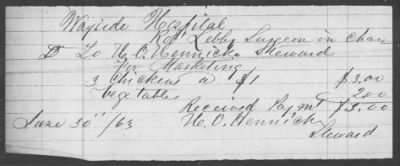 Wayside Hospital
Robt Lebby Surgeon in Char
D To H. O. Hennick Steward
For Marketing
3 Chickens a $1 $3.00
Vegetables 200
Received Paymt $5.00
June 30th /63 H. O. Hennick
Steward